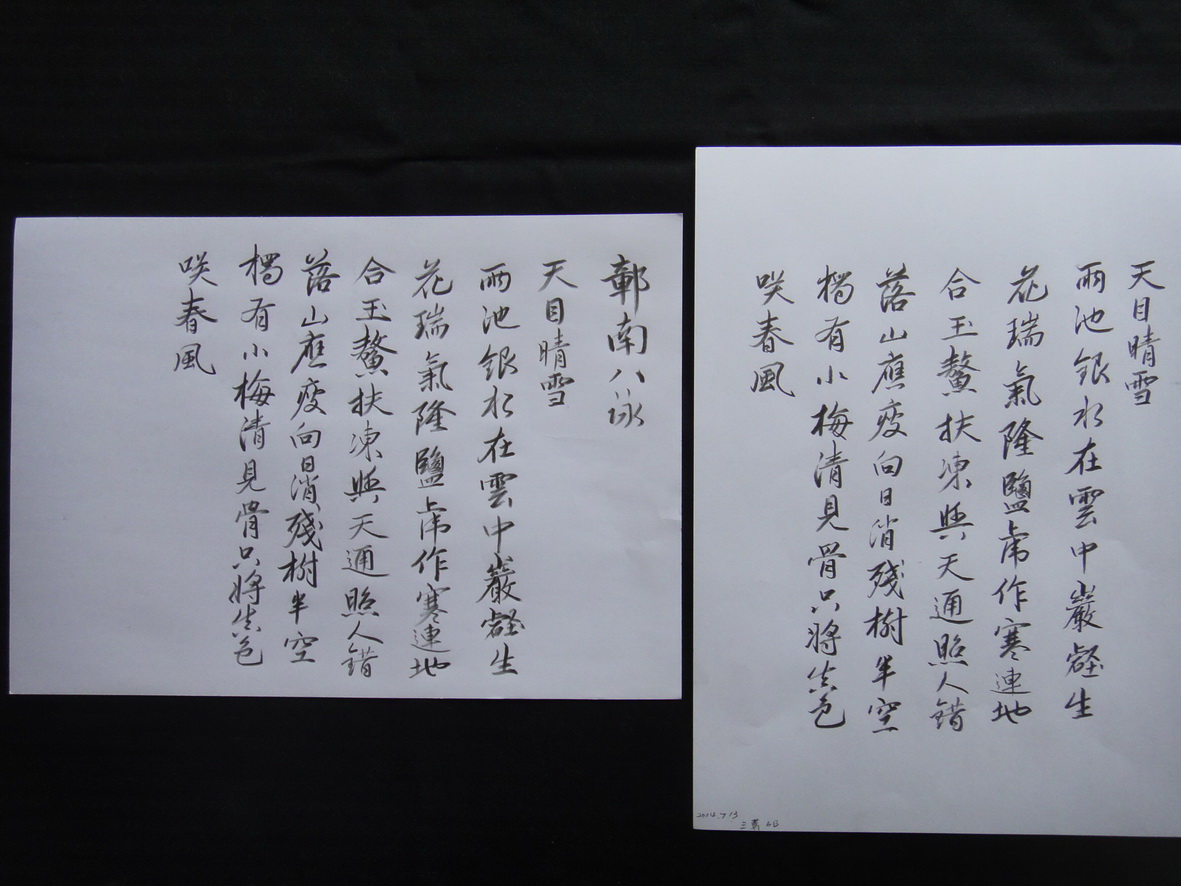 天目晴雪
兩池銀水在雲中巖壑生
花瑞氣隆鹽虎作寒連地
合玉鰲扶凍與天通照人錯
落山應瘦向日消殘樹半空
獨有小梅清見骨只將真色
咲春風
2014.7.13
鄣南八咏
天目晴雪
兩池銀水在雲中巖壑生
花瑞氣隆鹽虎作寒連地
合玉鰲扶凍與天通照人錯
落山應瘦向日消殘樹半空
獨有小梅清見骨只將真色
咲春風